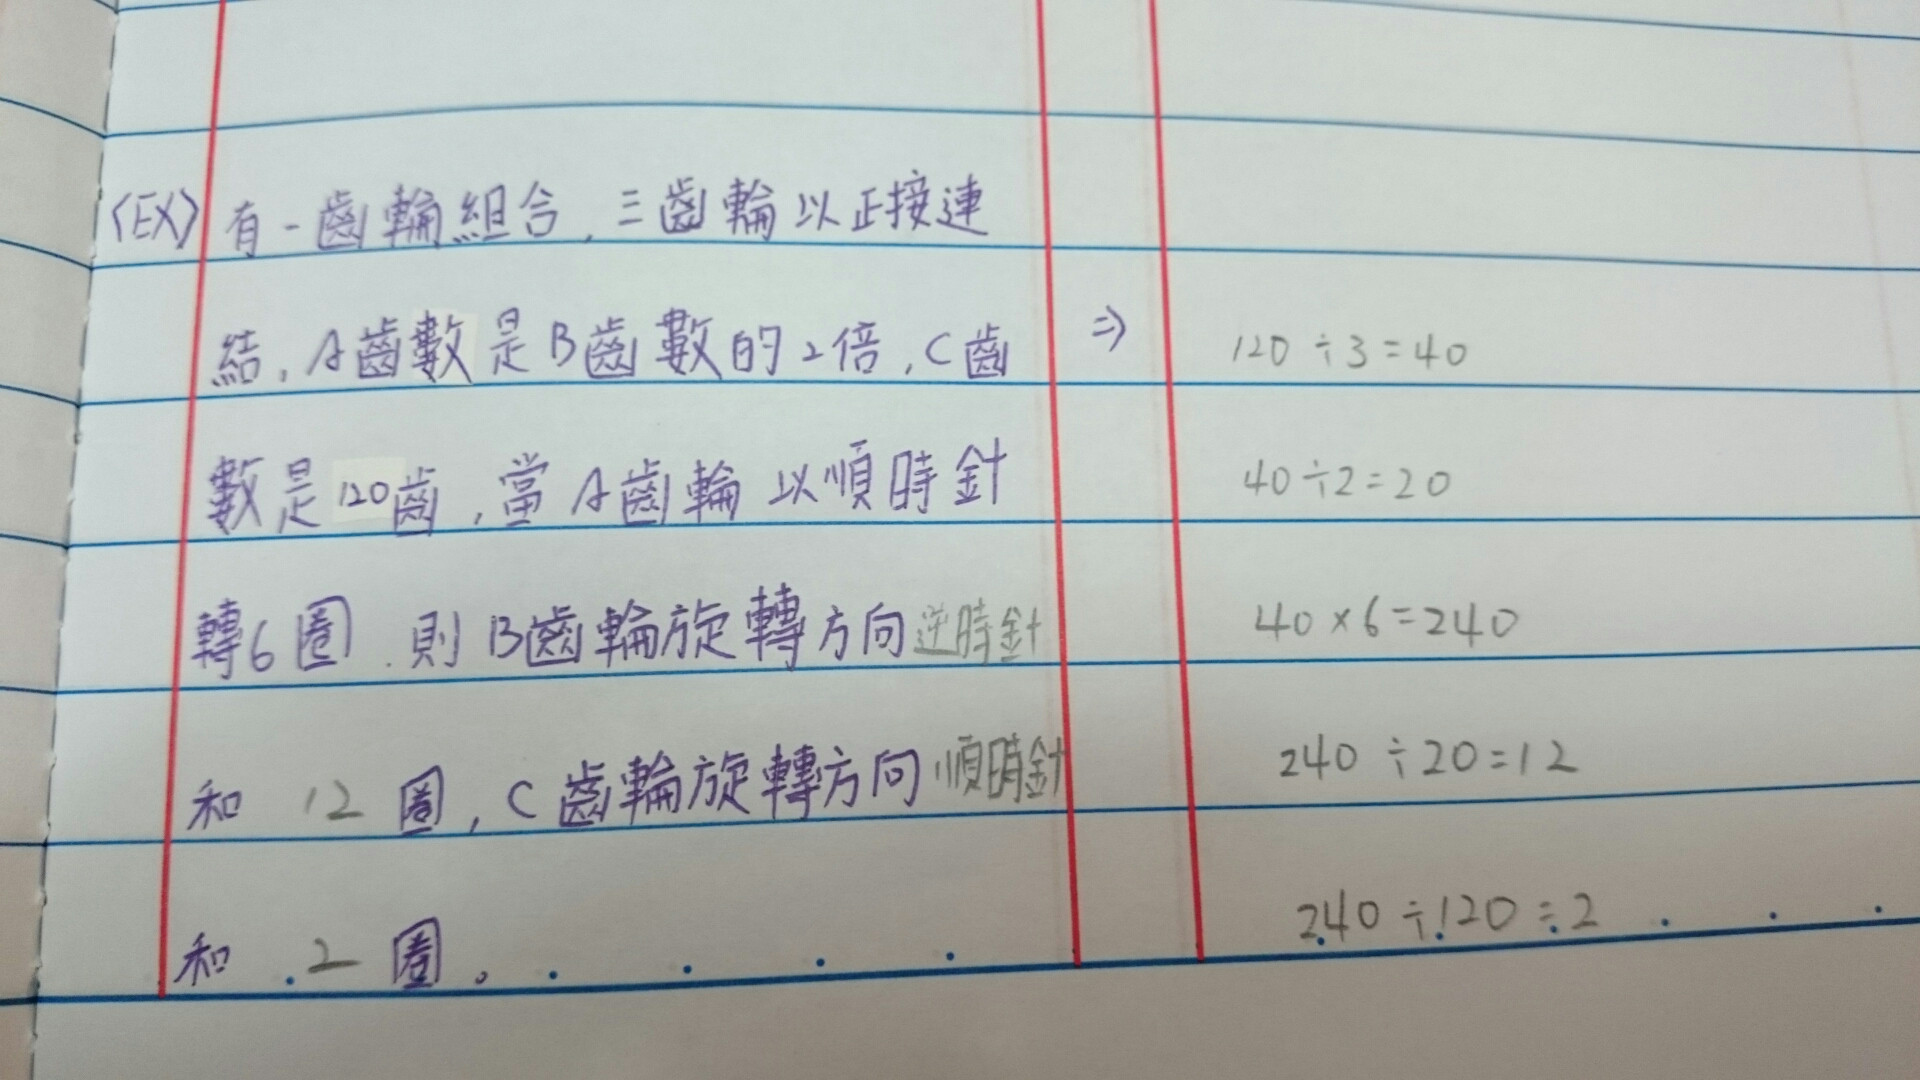 〈EX〉有一齒輪組合,三齒輪以正接連
結,A齒數是B齒數的2倍,C齒
數是120齒,當A齒輪以順時針
轉6圈,則B齒輪旋轉方向逆時針
和 12 圈,C齒輪旋轉方向順時針
和 2 圈。
⇒ 120÷3=40
40÷2=20
40×6=240
240÷20=12
240÷120=2